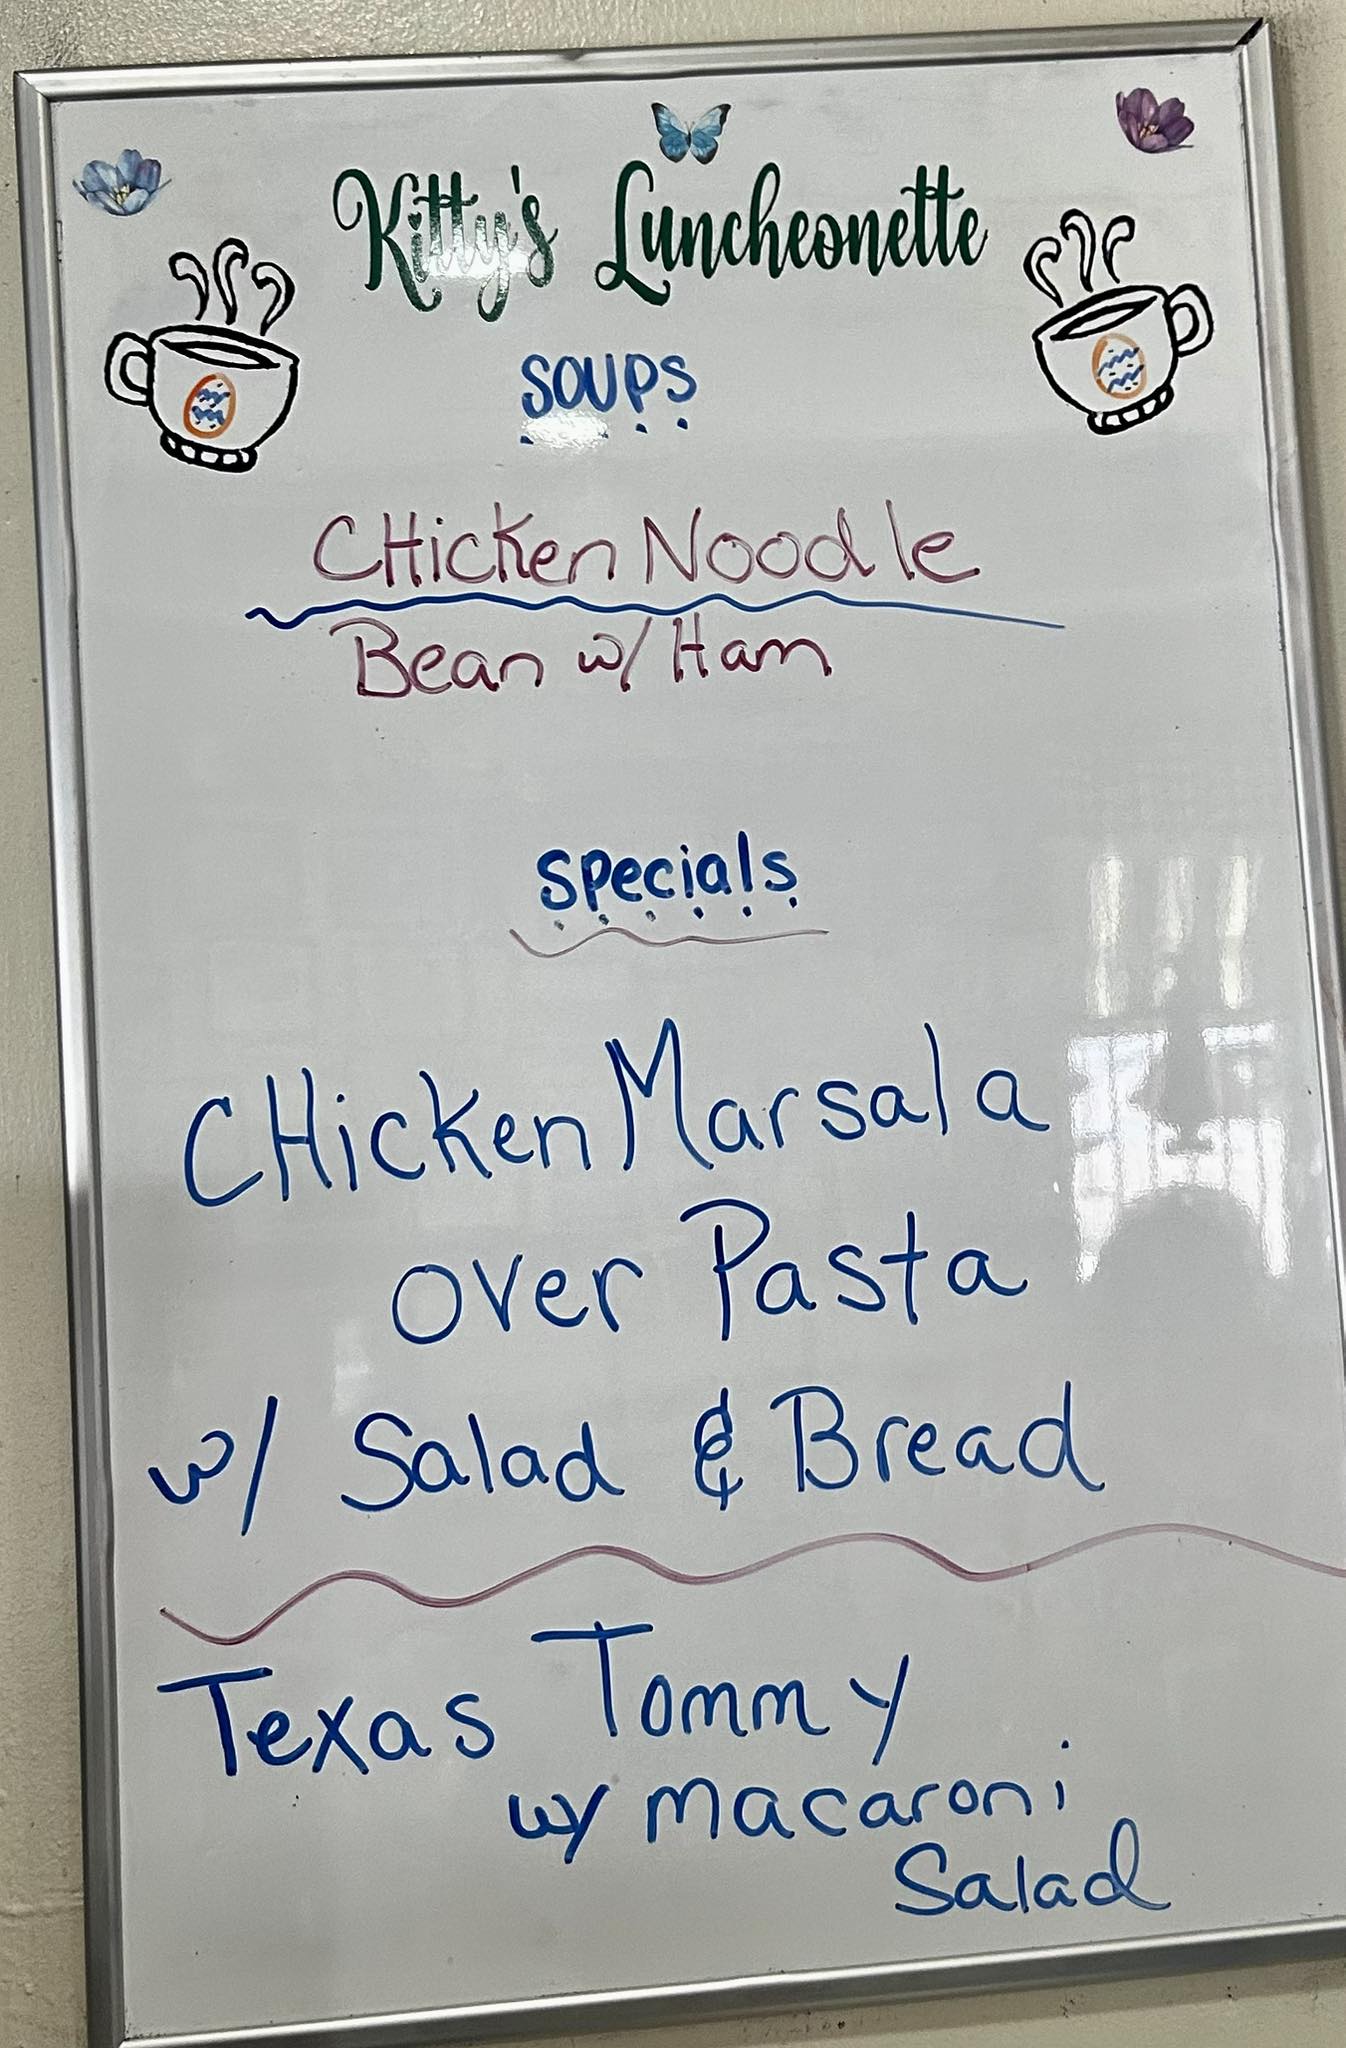 Kitty's Luncheonette
SOUPS
CHicken Noodle
Bean w/ Ham
specials
CHicken Marsala
over Pasta
w/ Salad & Bread
Texas Tommy
w/ macaroni
Salad